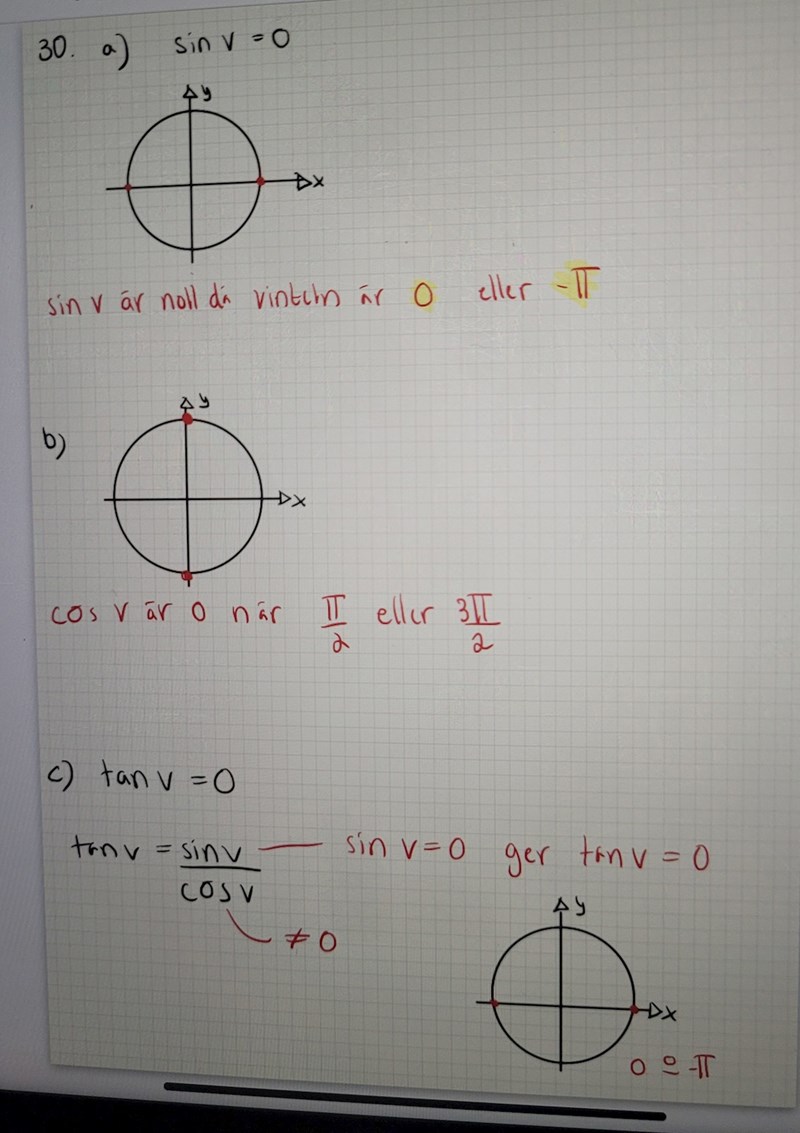 30. a) sin v = 0
y
x
sin v är noll då vinkeln är 0 eller -π
b)
y
x
cos v är 0 när π/2 eller 3π/2
c) tan v = 0
tan v = sin v / cos v — sin v = 0 ger tan v = 0
≠ 0
y
x
0 o -π